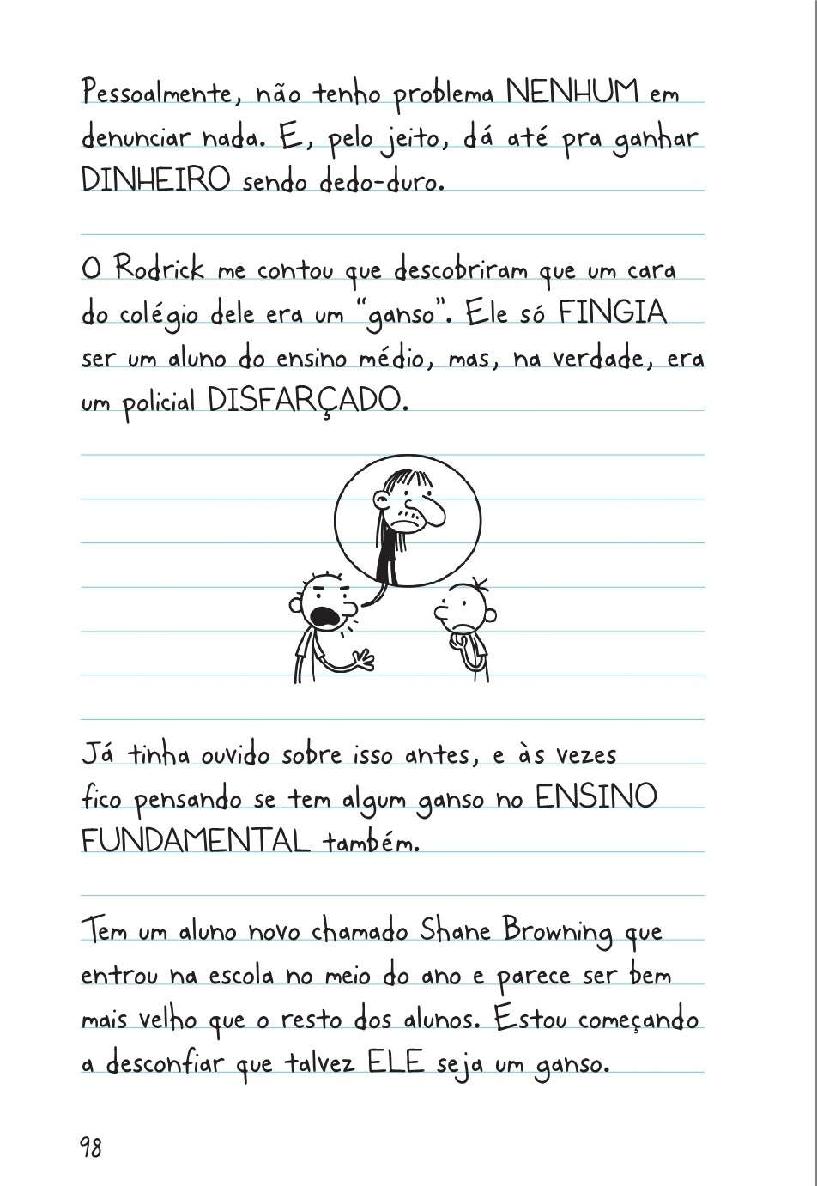 Pessoalmente, não tenho problema NENHUM em
denunciar nada. E, pelo jeito, dá até pra ganhar
DINHEIRO sendo dedo-duro.
O Rodrick me contou que descobriram que um cara
do colégio dele era um "ganso". Ele só FINGIA
ser um aluno do ensino médio, mas, na verdade, era
um policial DISFARÇADO.
Já tinha ouvido sobre isso antes, e às vezes
fico pensando se tem algum ganso no ENSINO
FUNDAMENTAL também.
Tem um aluno novo chamado Shane Browning que
entrou na escola no meio do ano e parece ser bem
mais velho que o resto dos alunos. Estou começando
a desconfiar que talvez ELE seja um ganso.
98